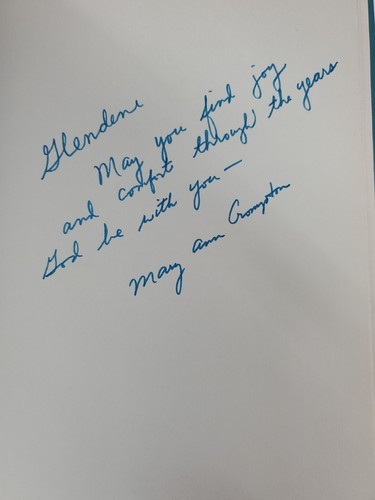 Glendene
May you find joy
and comfort through the years
God be with you —
Mary Ann Crompton